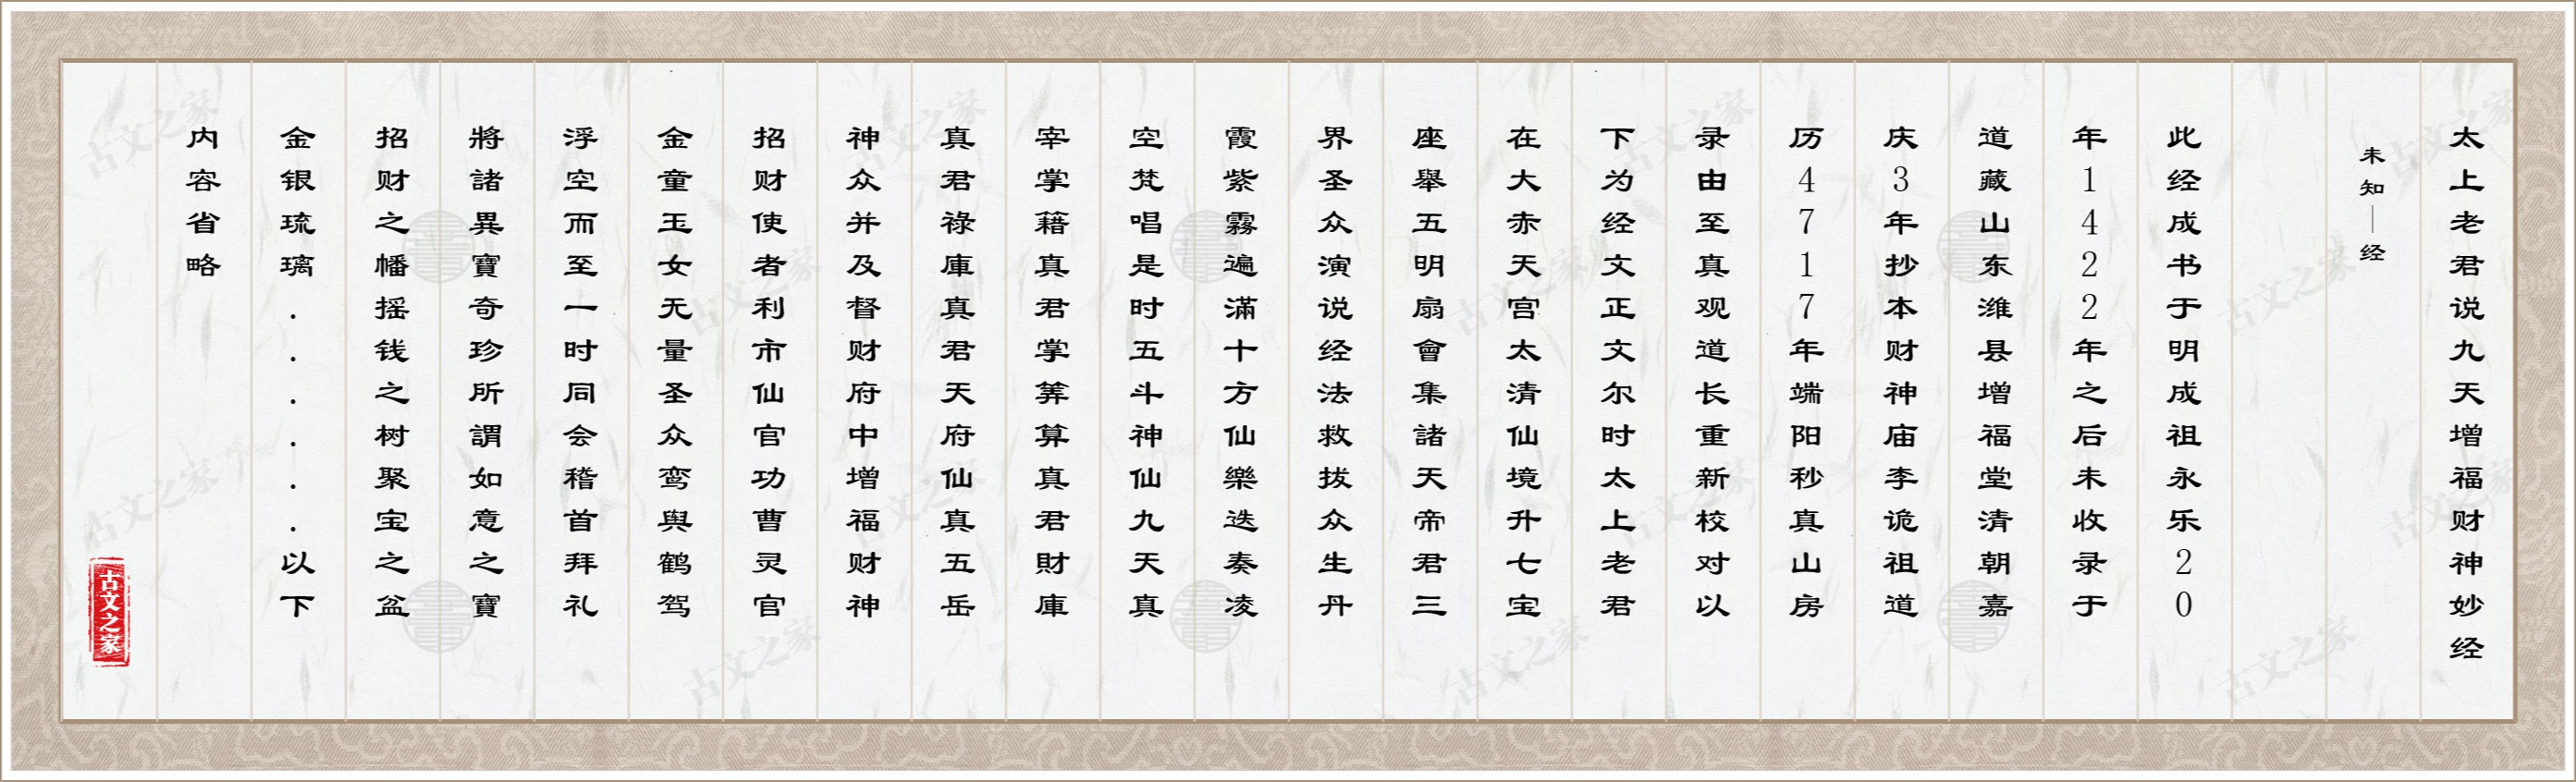 太上老君说九天增福财神妙经
未知—经
此经成书于明成祖永乐20
年1422年之后未收录于
道藏山东潍县增福堂清朝嘉
庆3年抄本财神庙李诡祖道
历4717年端阳秒真山房
录由至真观道长重新校对以
下为经文正文尔时太上老君
在大赤天宫太清仙境升七宝
座舉五明扇會集諸天帝君三
界圣众演说经法救拔众生丹
霞紫霧遍滿十方仙樂迭奏凌
空梵唱是时五斗神仙九天真
宰掌籍真君掌筭算真君財庫
真君祿庫真君天府仙真五岳
神众并及督财府中增福财神
招财使者利市仙官功曹灵官
金童玉女无量圣众鸾舆鹤驾
浮空而至一时同会稽首拜礼
將諸異寶奇珍所謂如意之寶
招财之幡摇钱之树聚宝之盆
金银琉璃......以下
内容省略
古文之家